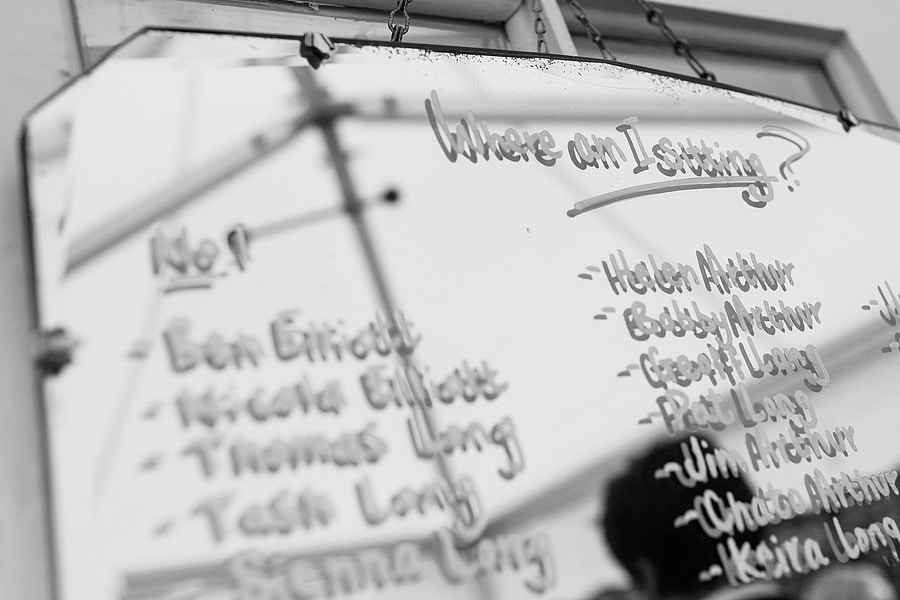 Where am I sitting?
No 1
- Ben Elliott
- Nicola Elliott
- Thomas Long
- Tash Long
- Sienna Long
- Helen Arthur
- Bobby Arthur
- Geoff Long
- Pat Long
- Jim Arthur
- Arthur
- Keira Long